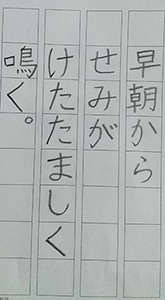 早朝から
せみが
けたたましく
鳴く。